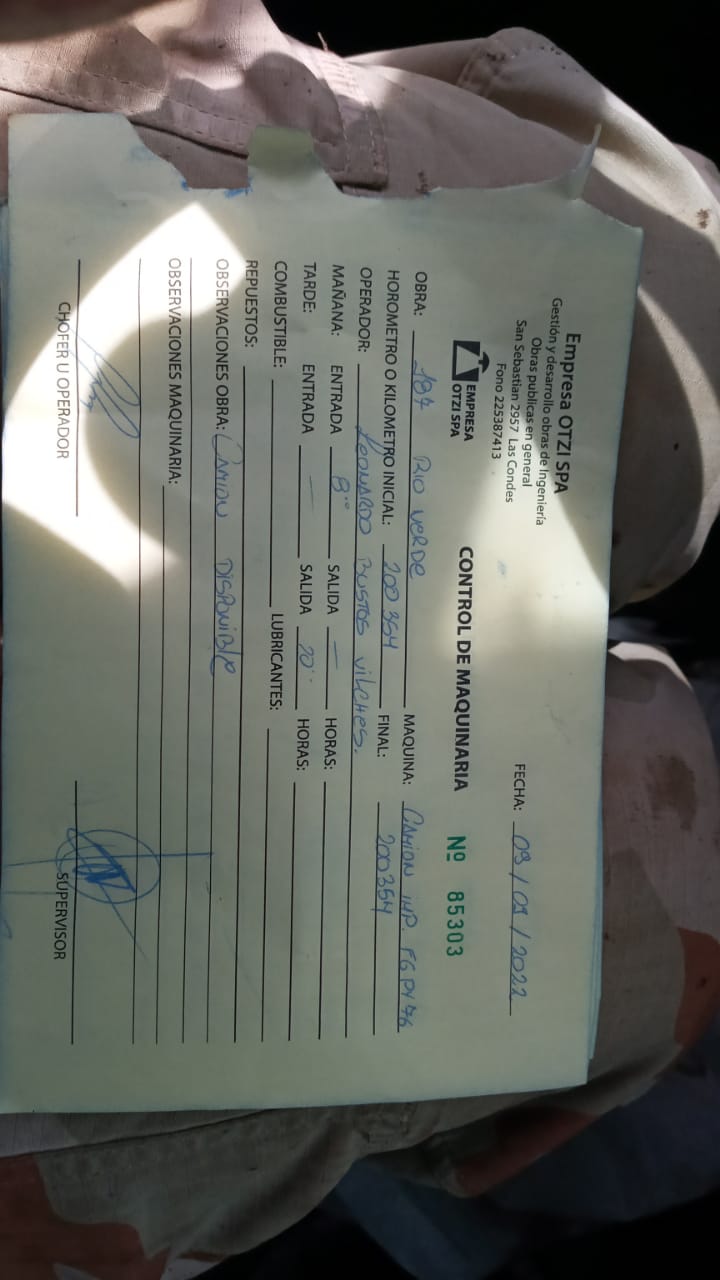 Empresa OTZI SPA
Gestión y desarrollo obras de Ingeniería
Obras publicas en general
San Sebastian 2957 Las Condes
Fono 225387413
EMPRESA
OTZI SPA
FECHA: 09 / 09 / 2022
CONTROL DE MAQUINARIA Nº 85303
OBRA: 187 RIO VERDE MAQUINA: CAMION IMP. FGPY76
HOROMETRO O KILOMETRO INICIAL: 200354 FINAL: 200354
OPERADOR: LEONARDO BUSTOS VILCHES.
MAÑANA: ENTRADA 8°° SALIDA — HORAS:
TARDE: ENTRADA — SALIDA 20°° HORAS:
COMBUSTIBLE: LUBRICANTES:
REPUESTOS:
OBSERVACIONES OBRA: CAMION DISPONIBLE
OBSERVACIONES MAQUINARIA:
CHOFER U OPERADOR SUPERVISOR